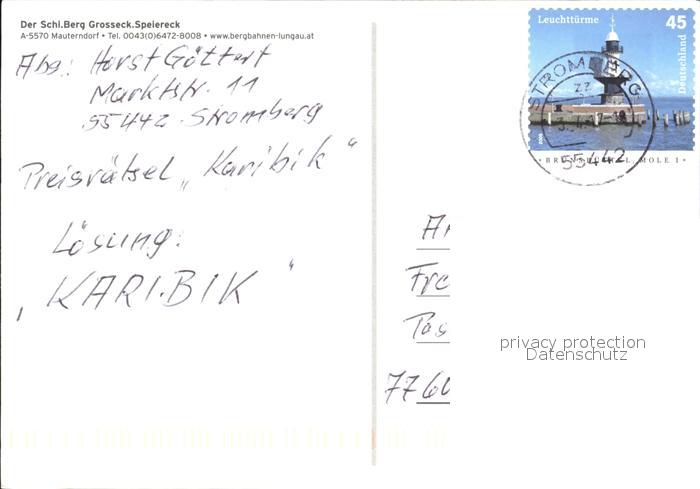 Der Schi.Berg Grosseck.Speiereck
A-5570 Mauterndorf • Tel. 0043(0)6472-8008 • www.bergbahnen-lungau.at
Abs.: Horst Göttert
Marktstr. 11
55442 Stromberg
Preisrätsel „Karibik“
Lösung:
„KARIBIK“
Leuchttürme 45
Deutschland
STROMBERG
zz
55442
BRUNSBÜTTEL, MOLE 1
Fre
776
privacy protection
Datenschutz